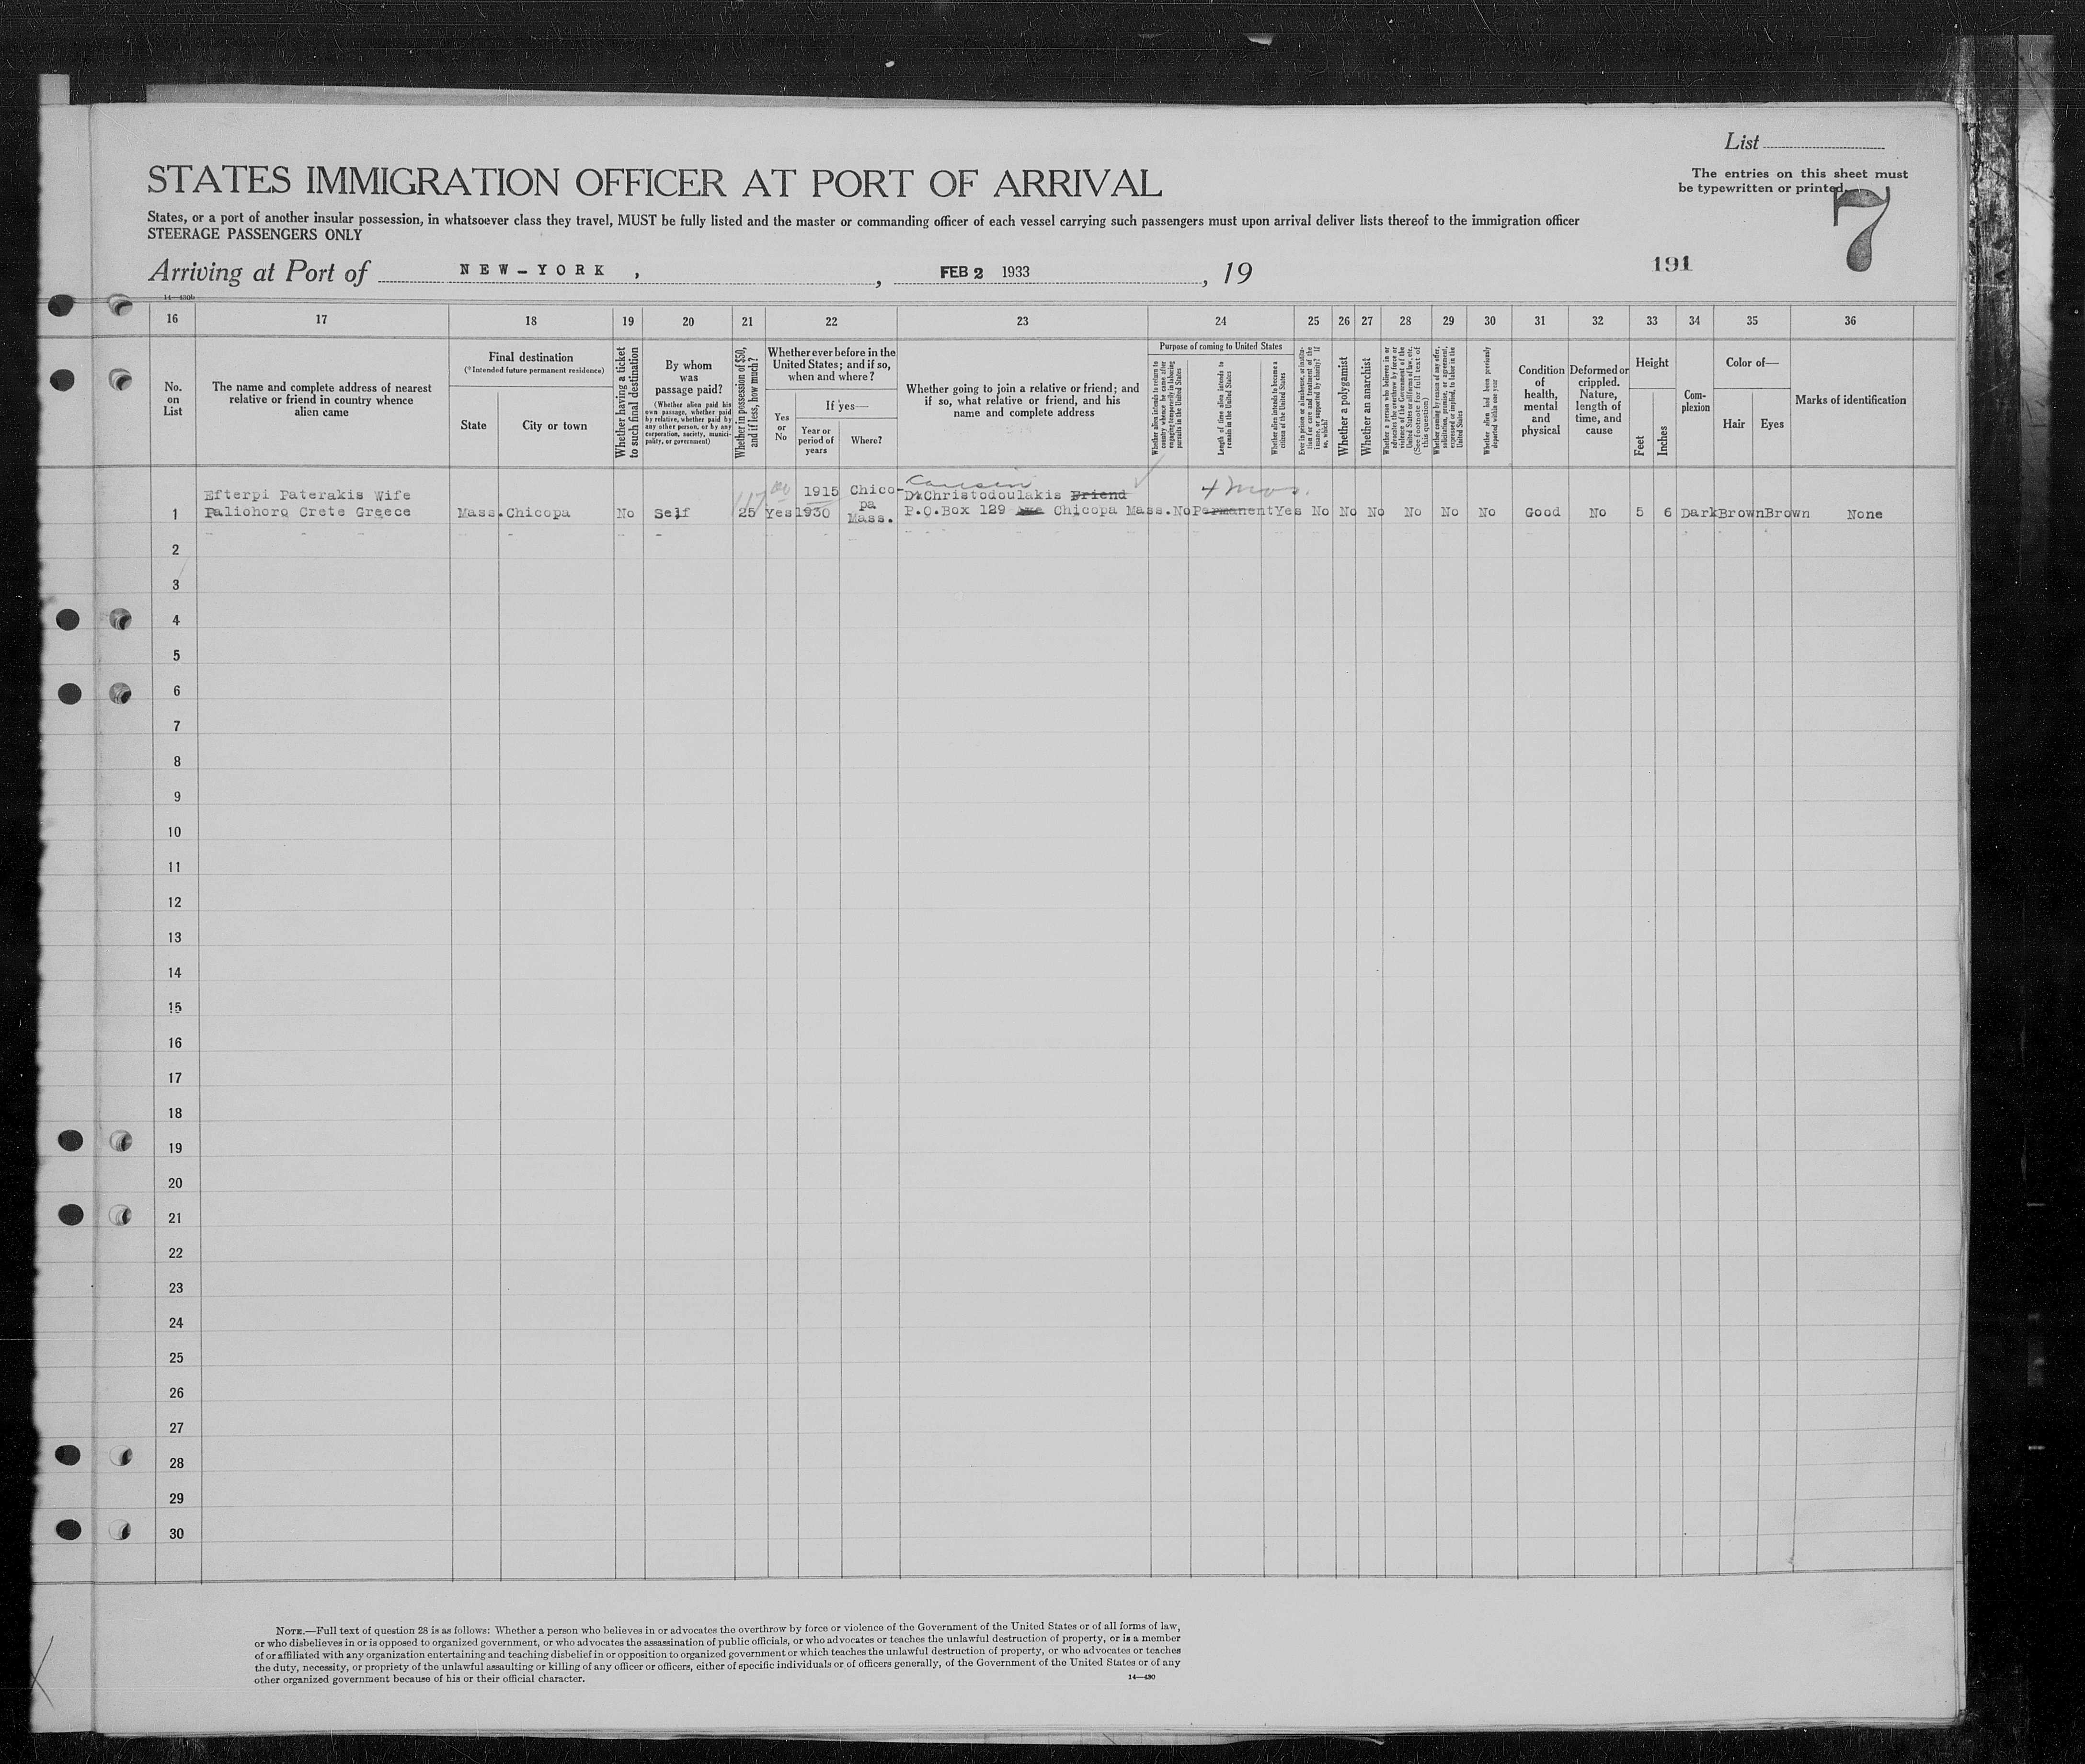 List
The entries on this sheet must
be typewritten or printed.
7
STATES IMMIGRATION OFFICER AT PORT OF ARRIVAL
States, or a port of another insular possession, in whatsoever class they travel, MUST be fully listed and the master or commanding officer of each vessel carrying such passengers must upon arrival deliver lists thereof to the immigration officer
STEERAGE PASSENGERS ONLY
191
Arriving at Port of NEW-YORK , , FEB 2 1933 , 19
14—430b
16 17 18 19 20 21 22 23 24 25 26 27 28 29 30 31 32 33 34 35 36
No. on List
The name and complete address of nearest relative or friend in country whence alien came
Final destination
(*Intended future permanent residence)
State
City or town
Whether having a ticket to such final destination
By whom was passage paid?
(Whether alien paid his own passage, whether paid by relative, whether paid by any other person, or by any corporation, society, municipality, or government)
Whether in possession of $50, and if less, how much?
Whether ever before in the United States; and if so, when and where?
Yes or No
If yes—
Year or period of years
Where?
Whether going to join a relative or friend; and if so, what relative or friend, and his name and complete address
Purpose of coming to United States
Whether alien intends to return to country whence he came after engaging temporarily in laboring pursuits in the United States
Length of time alien intends to remain in the United States
Whether alien intends to become a citizen of the United States
Ever in prison or almshouse, or institution for care and treatment of the insane, or supported by charity? If so, which?
Whether a polygamist
Whether an anarchist
Whether a person who believes in or advocates the overthrow by force or violence of the Government of the United States or all forms of law, etc. (See footnote for full text of this question)
Whether coming by reason of any offer, solicitation, promise, or agreement, expressed or implied, to labor in the United States
Whether alien had been previously deported within one year
Condition of health, mental and physical
Deformed or crippled. Nature, length of time, and cause
Height
Feet
Inches
Complexion
Color of—
Hair
Eyes
Marks of identification
Cousin
4 mos.
Efterpi Paterakis Wife 1915 Chico- Christodoulakis Friend
1 Paliohoro Crete Greece Mass. Chicopa No Self 25 Yes 1930 pa Mass. P.O.Box 129 Ave Chicopa Mass. No Permanent Yes No No No No No No Good No 5 6 Dark Brown Brown None
2
3
4
5
6
7
8
9
10
11
12
13
14
15
16
17
18
19
20
21
22
23
24
25
26
27
28
29
30
NOTE.—Full text of question 28 is as follows: Whether a person who believes in or advocates the overthrow by force or violence of the Government of the United States or of all forms of law,
or who disbelieves in or is opposed to organized government, or who advocates the assassination of public officials, or who advocates or teaches the unlawful destruction of property, or is a member
of or affiliated with any organization entertaining and teaching disbelief in or opposition to organized government or which teaches the unlawful destruction of property, or who advocates or teaches
the duty, necessity, or propriety of the unlawful assaulting or killing of any officer or officers, either of specific individuals or of officers generally, of the Government of the United States or of any
other organized government because of his or their official character.
14—430